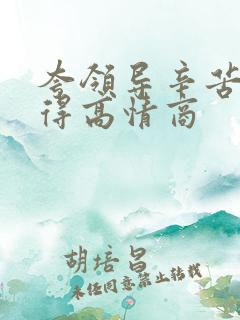 夸领导辛苦
得高情商
胡培昌
未经同意禁止转载